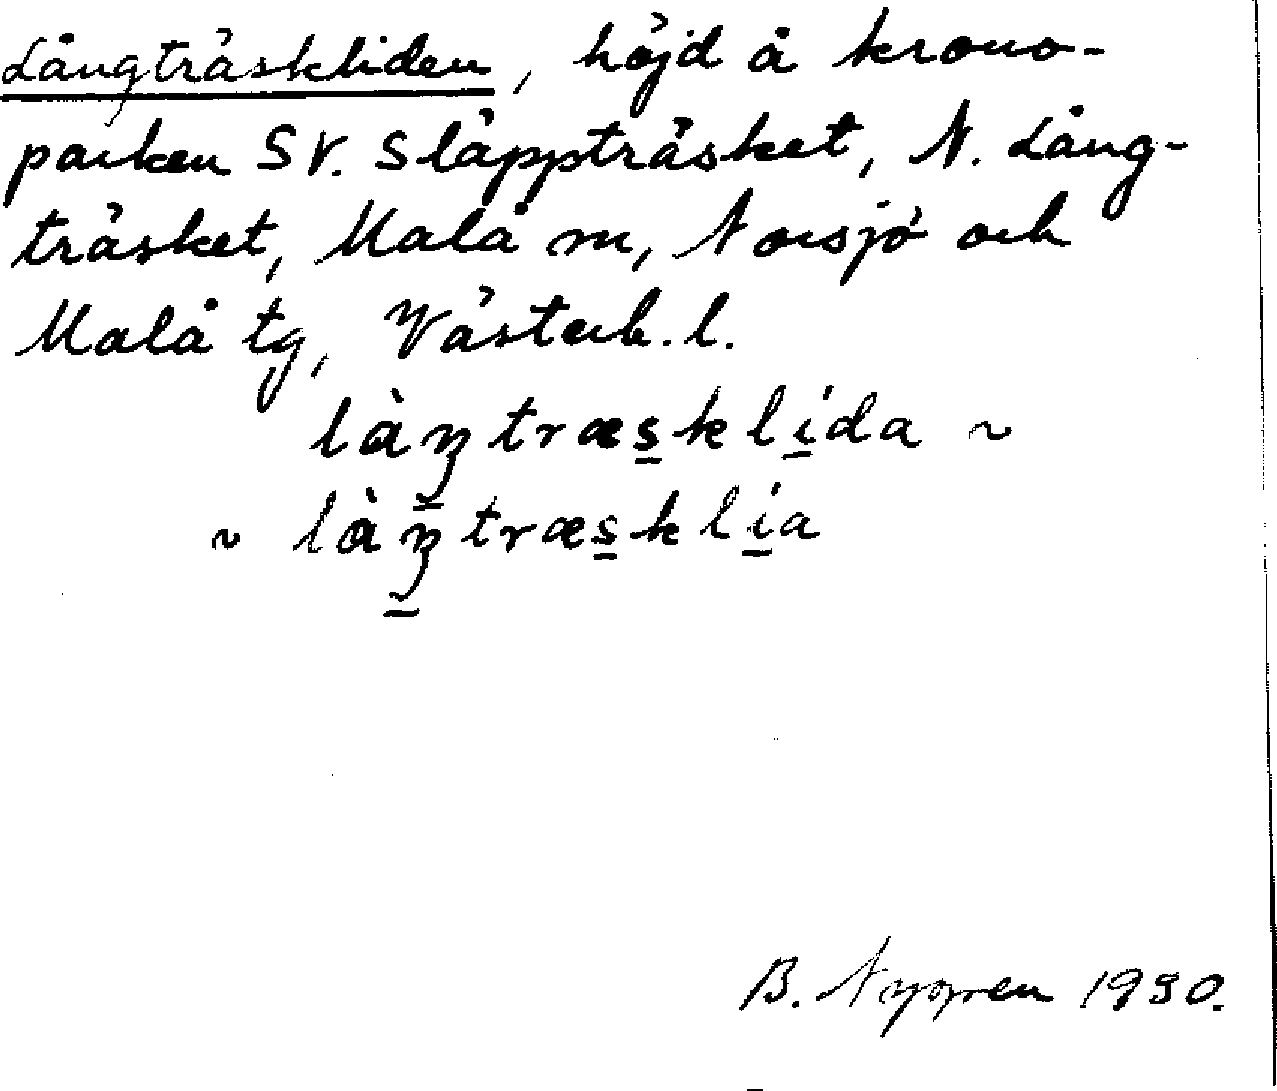 Långträskliden, höjd å krono-
parken SV. Släppträsket, N. Lång-
träsket, Malå sn, Norsjö och
Malå tg, Västerb. l.
làŋtræsklída ~
~ làŋtræsklía
B. Nygren 1930.